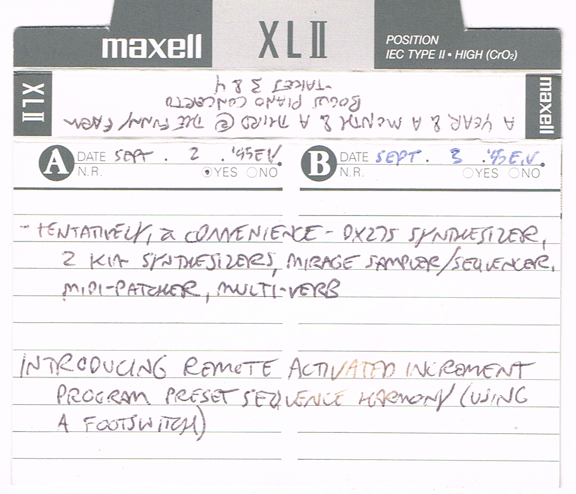 maxell XLII POSITION
IEC TYPE II • HIGH (CrO₂)
XLII maxell
A YEAR & A MONTH & A THIRD @ THE FUNNY FARM
BOGUS PIANO CONCERTO
-TAKES 3 & 4
A DATE SEPT. 2. '95 E.V.
N.R. YES NO
B DATE SEPT. 3 .'95 E.V.
N.R. YES NO
- TENTATIVELY, A CONVENIENCE - DX27S SYNTHESIZER,
2 K1M SYNTHESIZERS, MIRAGE SAMPLER/SEQUENCER,
MIDI-PATCHER, MULTI-VERB
INTRODUCING REMOTE ACTIVATED INCREMENT
PROGRAM PRESET SEQUENCE HARMONY (USING
A FOOTSWITCH)